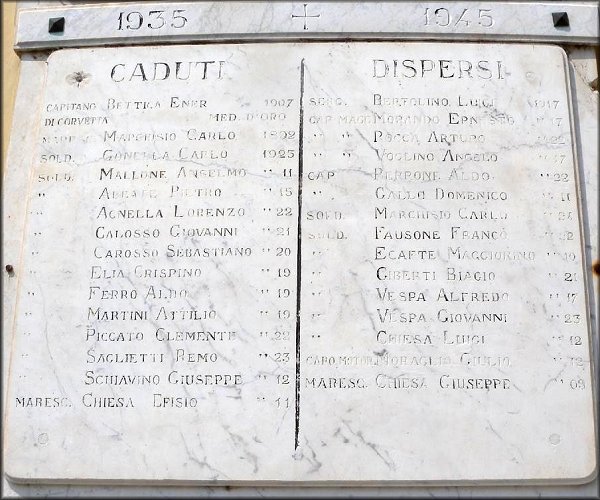 1935 1945
CADUTI
CAPITANO BETTICA ENER 1907
DI CORVETTA MED. D'ORO
MARCHISIO CARLO 1892
SOLD. GONELLA CARLO 1925
SOLD. MALLONE ANSELMO " 11
" ABBATE PIETRO " 15
" AGNELLA LORENZO " 22
" CALOSSO GIOVANNI " 21
" CAROSSO SEBASTIANO " 20
" ELIA CRISPINO " 19
" FERRO ALDO " 19
" MARTINI ATTILIO " 19
" PICCATO CLEMENTE " 22
" SAGLIETTI REMO " 23
" SCHIAVINO GIUSEPPE " 12
MARESC. CHIESA EFISIO " 11
DISPERSI
SERG. BERTOLINO LUIGI 1917
CAP. MAGG. MORANDO ERNESTO
" " ROCCA ARTURO " 22
" " VOGLINO ANGELO " 17
CAP. PERRONE ALDO " 22
" GALLO DOMENICO " 11
SOLD. MARCHISIO CARLO
SOLD. FAUSONE FRANCO
" ECAFTE MAGGIORINO " 19
" GIBERTI BIAGIO " 21
" VESPA ALFREDO " 17
" VESPA GIOVANNI " 23
" CHIESA LUIGI " 12
CAPO MOTOR. MORAGLIO GIULIO " 12
MARESC. CHIESA GIUSEPPE " 09